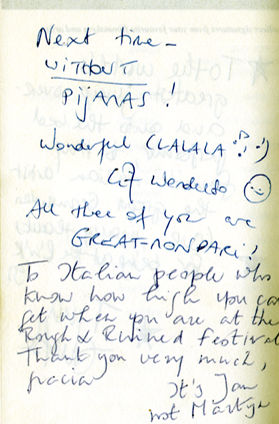 Next time -
WITHOUT
PIJAMAS!
Wonderful CLALALA
All three of you are
GREAT-NONPARI!
To Italian people who
know how high you can
get when you are at the
Rough & Ruined Festival
Thank you very much,
It's Jan
not Martyn